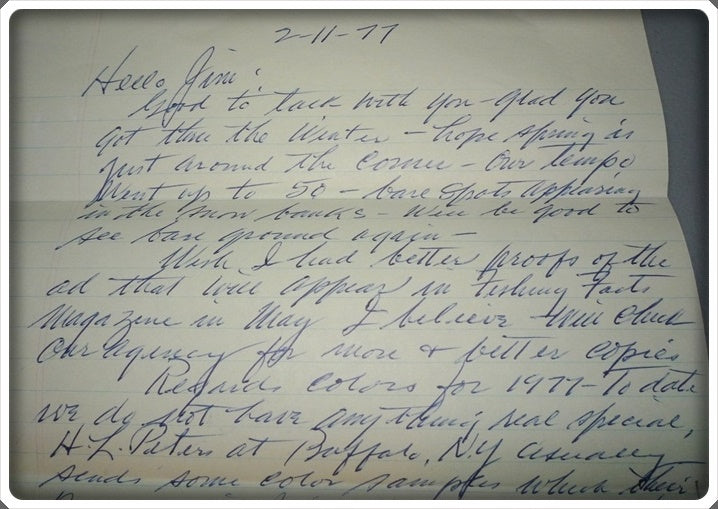 2-11-77
Hello Jim:
Good to talk with you - glad you
got thru the Winter - hope spring is
just around the corner - Our temps
went up to 50 - bare spots appearing
in the snow banks - Will be good to
see bare ground again -
Wish I had better proofs of the
ad that will appear in Fishing Facts
Magazine in May I believe - Will check
our agency for more & better copies
Regards colors for 1977 - To date
we do not have anything real special,
H.L. Peters at Buffalo, N.Y usually
sends some color samples which their